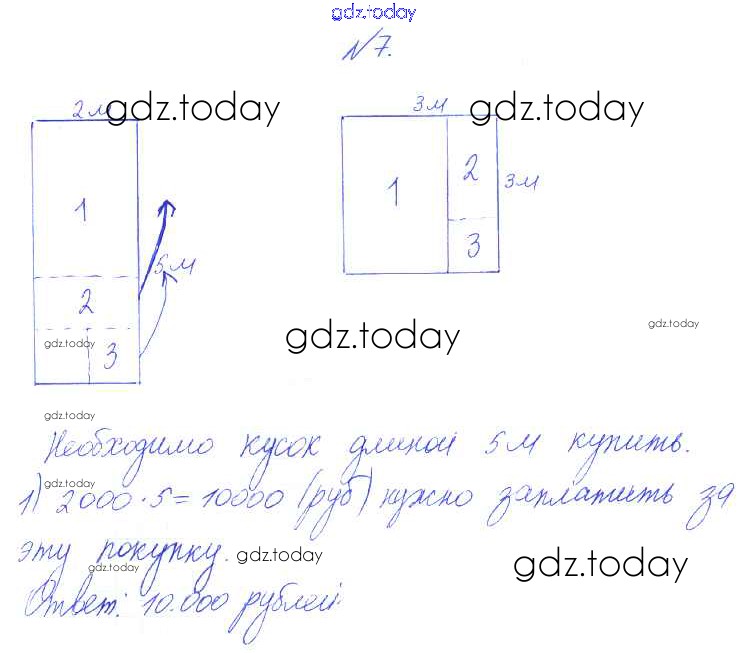 gdz.today
№7.
2м gdz.today
3м gdz.today
1
2
5м
gdz.today
3
1
2
3м
3
gdz.today
gdz.today
gdz.today
Необходимо кусок длиной 5м купить.
gdz.today
1) 2000·5=10000 (руб) нужно заплатить за
эту покупку. gdz.today
gdz.today
gdz.today
Ответ: 10.000 рублей.